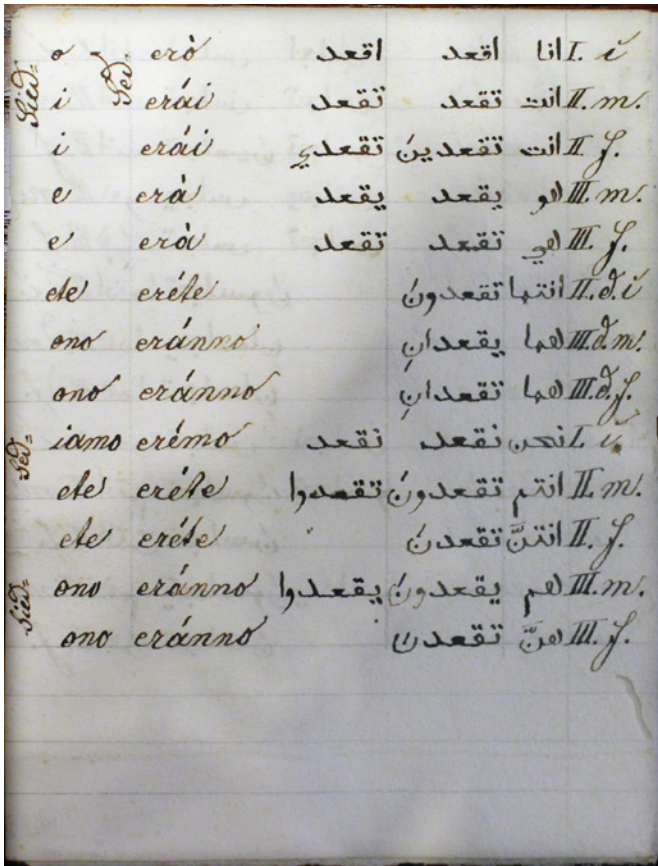 Sied= o - Sed erò اقعد اقعد انا I. i
i erái تقعد تقعد انت II. m.
i erái تقعدي تقعدين انت II f.
e erà يقعد يقعد هو III. m.
e erà تقعد تقعد هي III. f.
ete eréte تقعدون انتما II. d. i
ono eránno يقعدانِ هما III. d. m.
ono eránno تقعدانِ هما III. d. f.
Sed= iamo erémo نقعد نقعد نحن I. i.
ete eréte تقعدوا تقعدون انتم II. m.
ete eréte تقعدن انتنَّ II. f.
Sied= ono eránno يقعدوا يقعدون هم III. m.
ono eránno تقعدن هنَّ III. f.